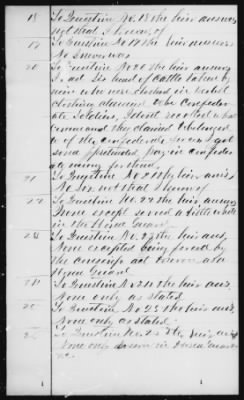 18 To Question No. 18 the heir answers
not that I know of
19 To Question No 19 the heir answers
No I never was
20 To Question No 20 the heir answers
I had Six head of Cattle taken by
men who were clothed in rebel
clothing claimed to be Confeder-
ate Soldiers, I dont recollect what
command they claimed to belonged
to of the confederate forces I got
some pay in confeder
ate money for them
21 To Question No 21 the heir ans.
No Sir not that I know of
22 To Question No. 22 the heir answers
None except served a little while
in the Home Guard
23 To Question No. 23 the heir ans.
None excepted being forced by
the conscript act to serve in the
Home Guard
24 To Question No 24 the heir ans.
None only as stated
25 To Question No 25 the heir ans.
None only as stated
To Question No. 26 the heir ans
None only in Home Guard